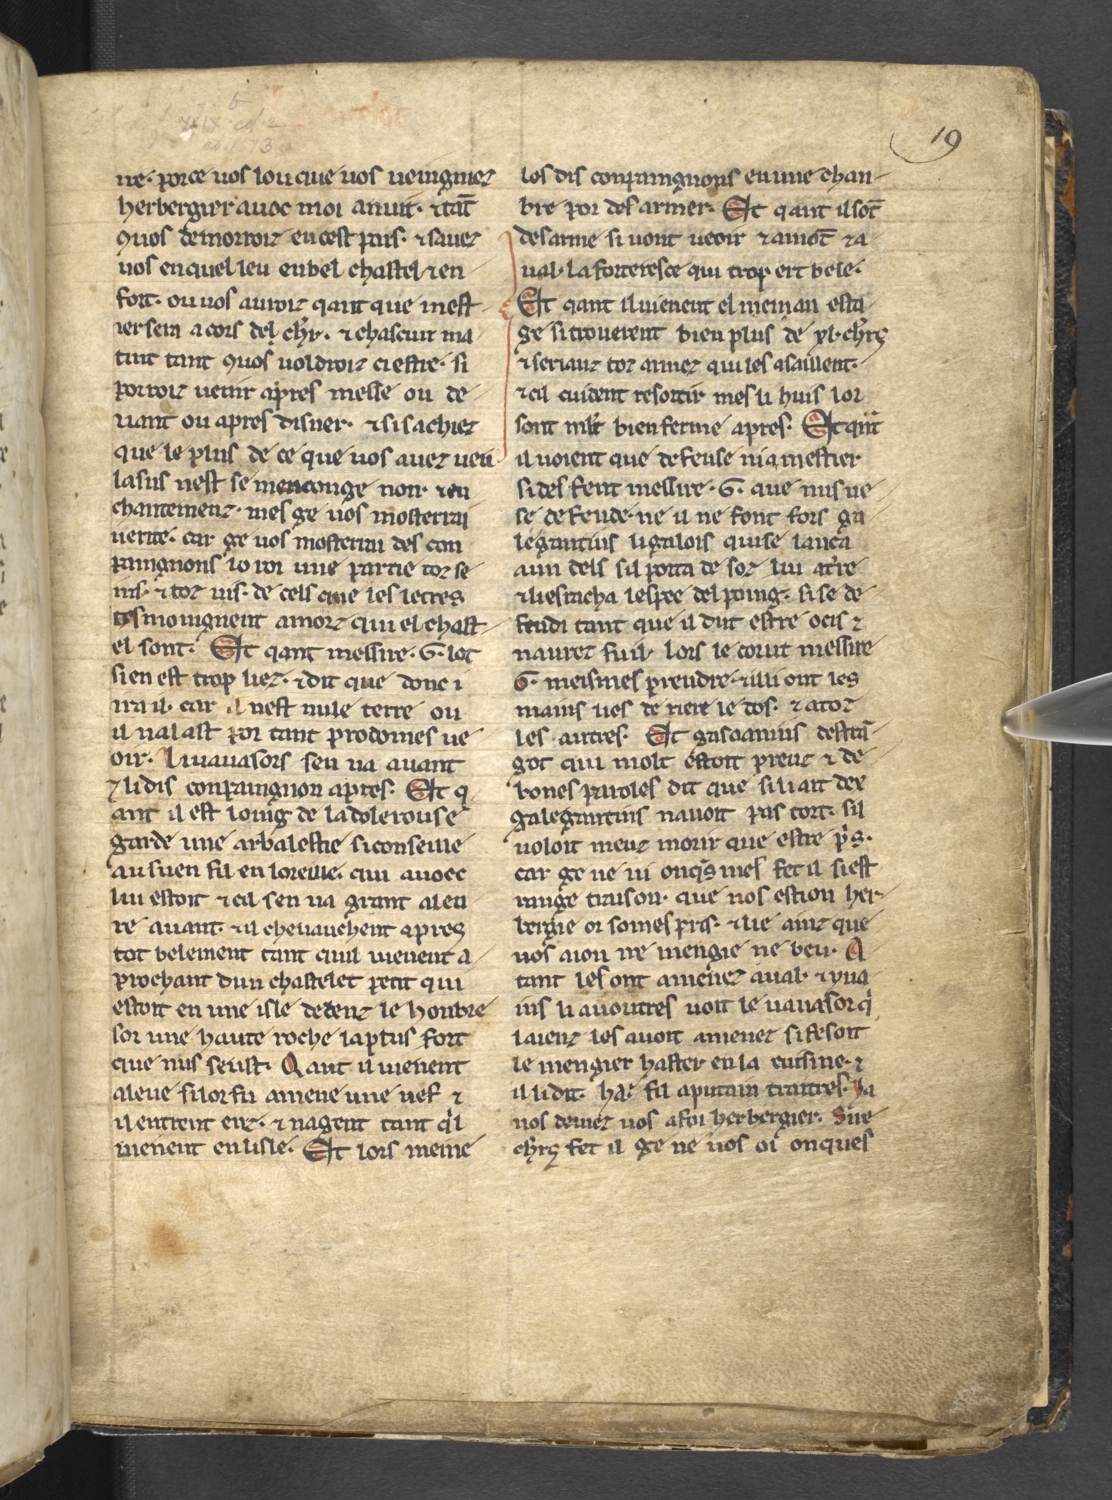 19
ne· porce uos lou que uos ueingniez
herbergier auoc moi anuit· ⁊ tāt
quos demorroiz en cest païs· ⁊ sauez
uos en quel leu en bel chastel ⁊ en
fort· ou uos auroiz qant que mest
ier sera a cors del chr̄· ⁊ chascun ma
tint tant quos uoldroiz ci estre· si
porroiz uenir apres messe ou de
uant ou apres disner· ⁊ si sachiez
que le plus de ce que uos auez ueu
lasus nest se menconge non· ⁊ en
chantemenz· mes ge uos mosterrai
uerite· car ge uos mosterrai des con
paingnons lo roi une partie toz se
ins· ⁊ toz uis· de cels que les letres
tesmoingnent amorz qui el chast
el sont· Et qant messire· G· lot
si en est trop liez· ⁊ dit que donc i
ira il· car il nest nule terre ou
il nalast por tant prodomes ue
oir· Li uauasors sen ua auant
⁊ li dis conpaingnon apres· Et q
ant il est loing de la dolerouse
garde une arbalestie si conseille
au suen fil en loreille· qui auoec
lui estoit ⁊ cil sen ua grant aleu
re auant· ⁊ il cheuauchent apres
tot belement tant quil uienent a
prochant dun chastelet petit qui
estoit en une isle dedenz le honbre
sor une haute roche la plus fort
que nus seust· Qant il uienent
aleue si lor fu amene une nef ⁊
il entrent enz· ⁊ nagent tant q̄l
uienent en lisle· Et lors meine
los dis conpaingnons en une chan
bre por desarmer· Et qant il sōt
desarme si uont ueoir ⁊ amōt ⁊ a
ual· la forteresce qui trop ert bele·
Et qant il uienent el meian esta
ge si trouerent bien plus de xl· chr̄s
⁊ serianz toz armez qui les asaillent·
⁊ cil cuident resortir mes li huis lor
sont mlt bien ferme apres· Et qāt
il uoient que defense ni a mestier
si desfent messire· G· que nus ne
se defende· ne il ne font fors ga
legantins li galois qui se lanca
a un dels sil porta de soz lui at̄re
⁊ li esracha lespee del poing· si se de
fendi tant que il dut estre ocis ⁊
naurez fu il· lors le corut messire
G· meismes prendre· ⁊ illi ont les
mains liees de riere le dos· ⁊ a toz
les autres· Et gasoainus destrā
got qui molt estoit preuz ⁊ de
bones paroles dit que si li ait dex
galegantins nauoit pas tort· sil
uoloit meuz morir que estre p̄s·
car ge ne ui onq̄s mes fet il si est
range traison· que nos estion her
bergie or somes pris· ⁊ lie ainz que
nos aion ne mengie ne beu· A
tant les ont amenez aual· ⁊ yua
ins li auoutres uoit le uauasor q̄
laienz les auoit amenez si fesoit
le mengier haster en la cuisine· ⁊
il li dit· ha· fil a putain traitres· Ja
nos deuiez uos a foi herbergier· Sire
chr̄s fet il ge ne uos oi onques